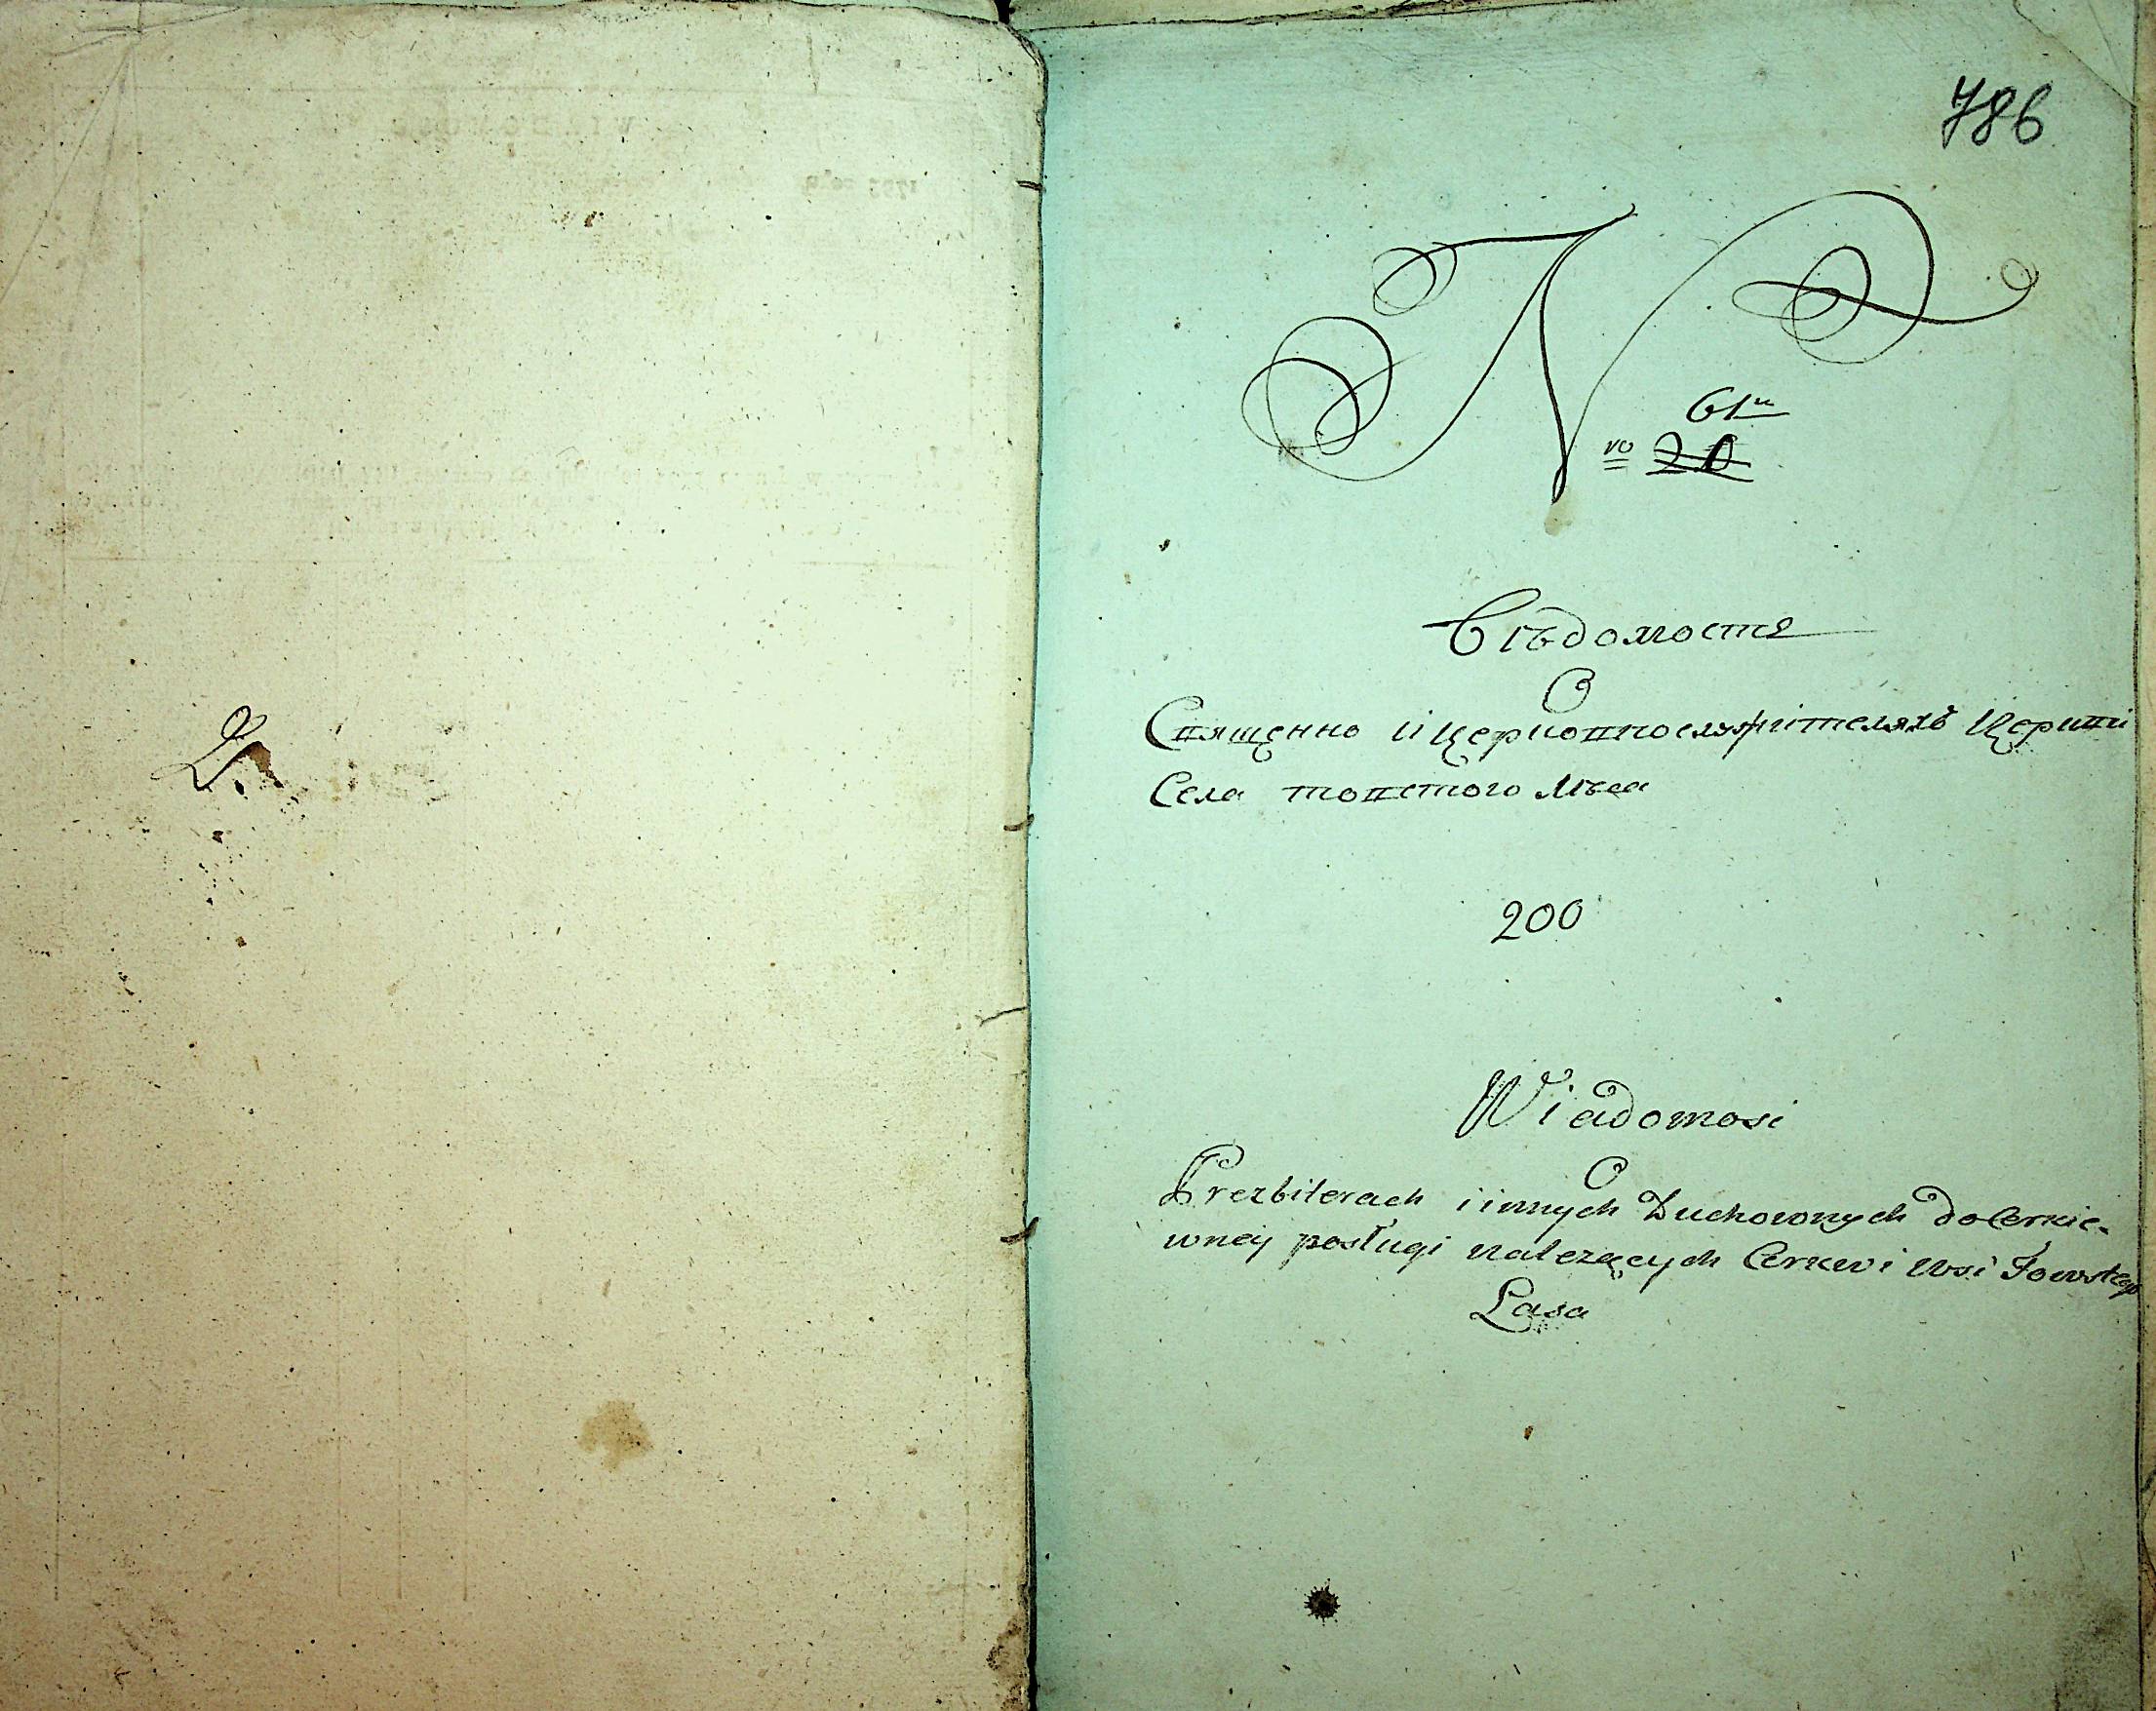 786
N ro 20
61
Вѣдомость
О
Священно и церковнослужителяхъ Церкви
Села товстого лѣса
200
Wiadomosi
O
Prezbiterach i innych Duchownych do Cerkie-
wney posługi należących Cerkwi Wsi Towstego
Lasa